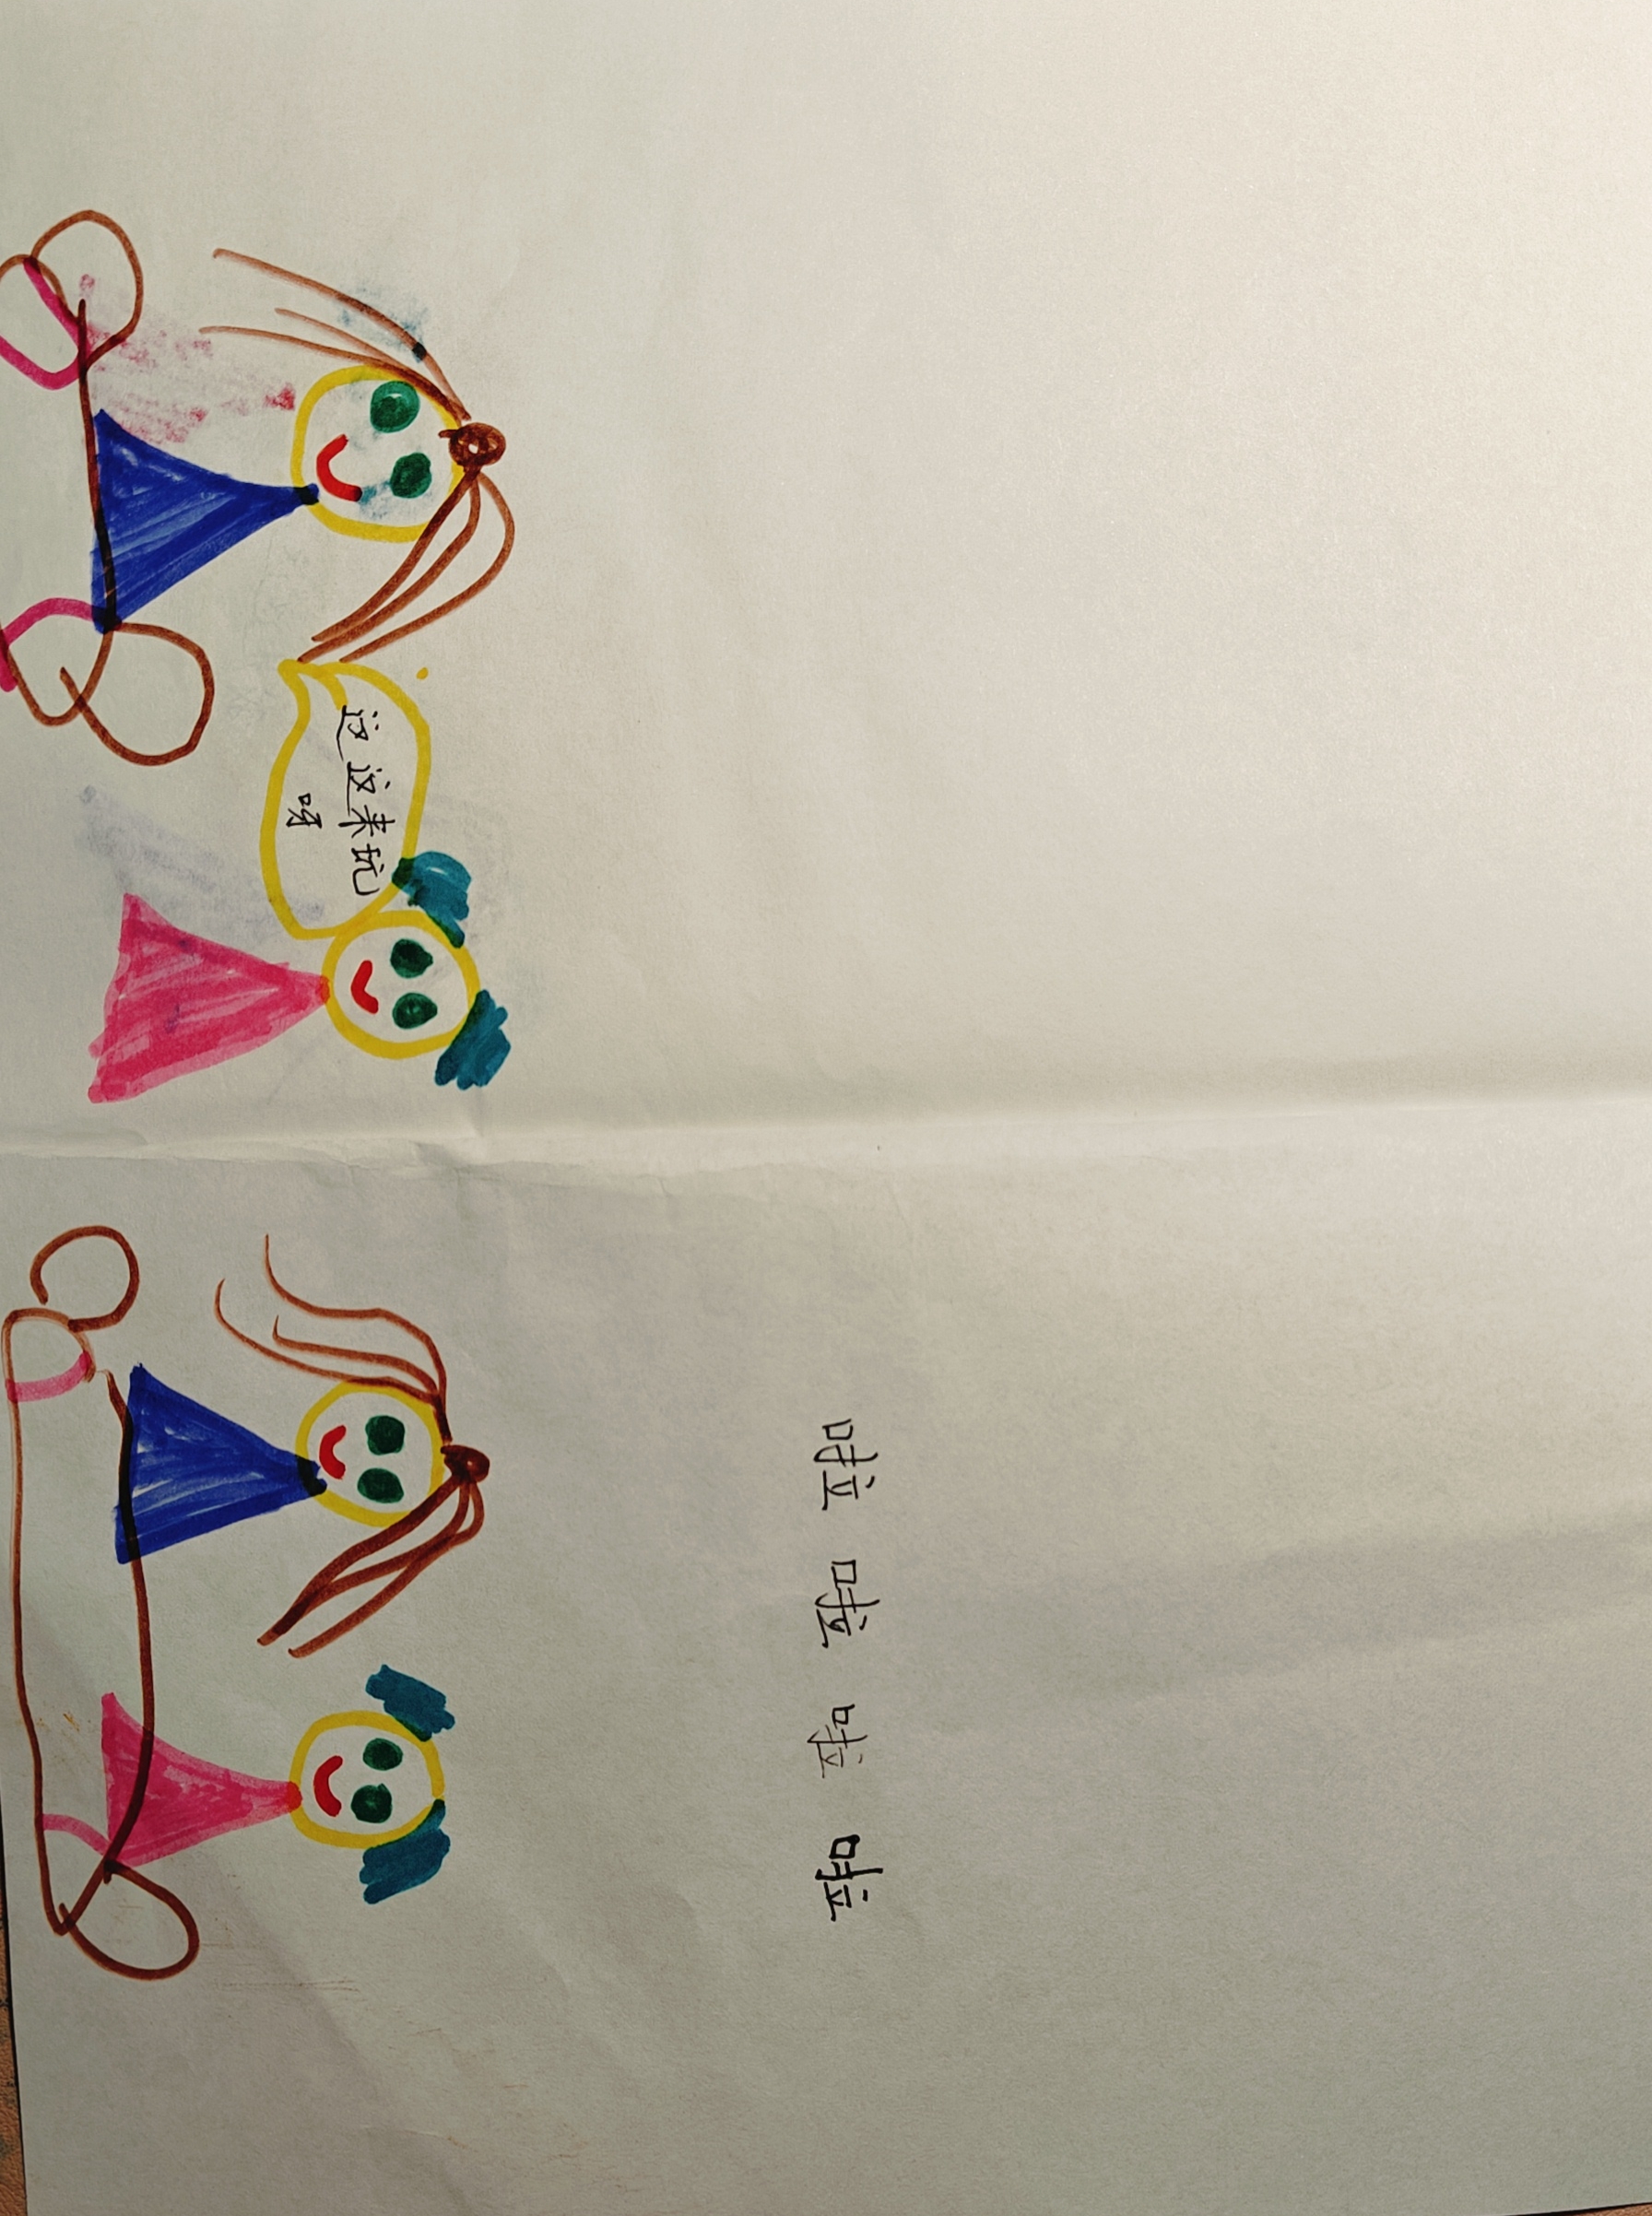 这这来玩
呀
啦啦啦啦